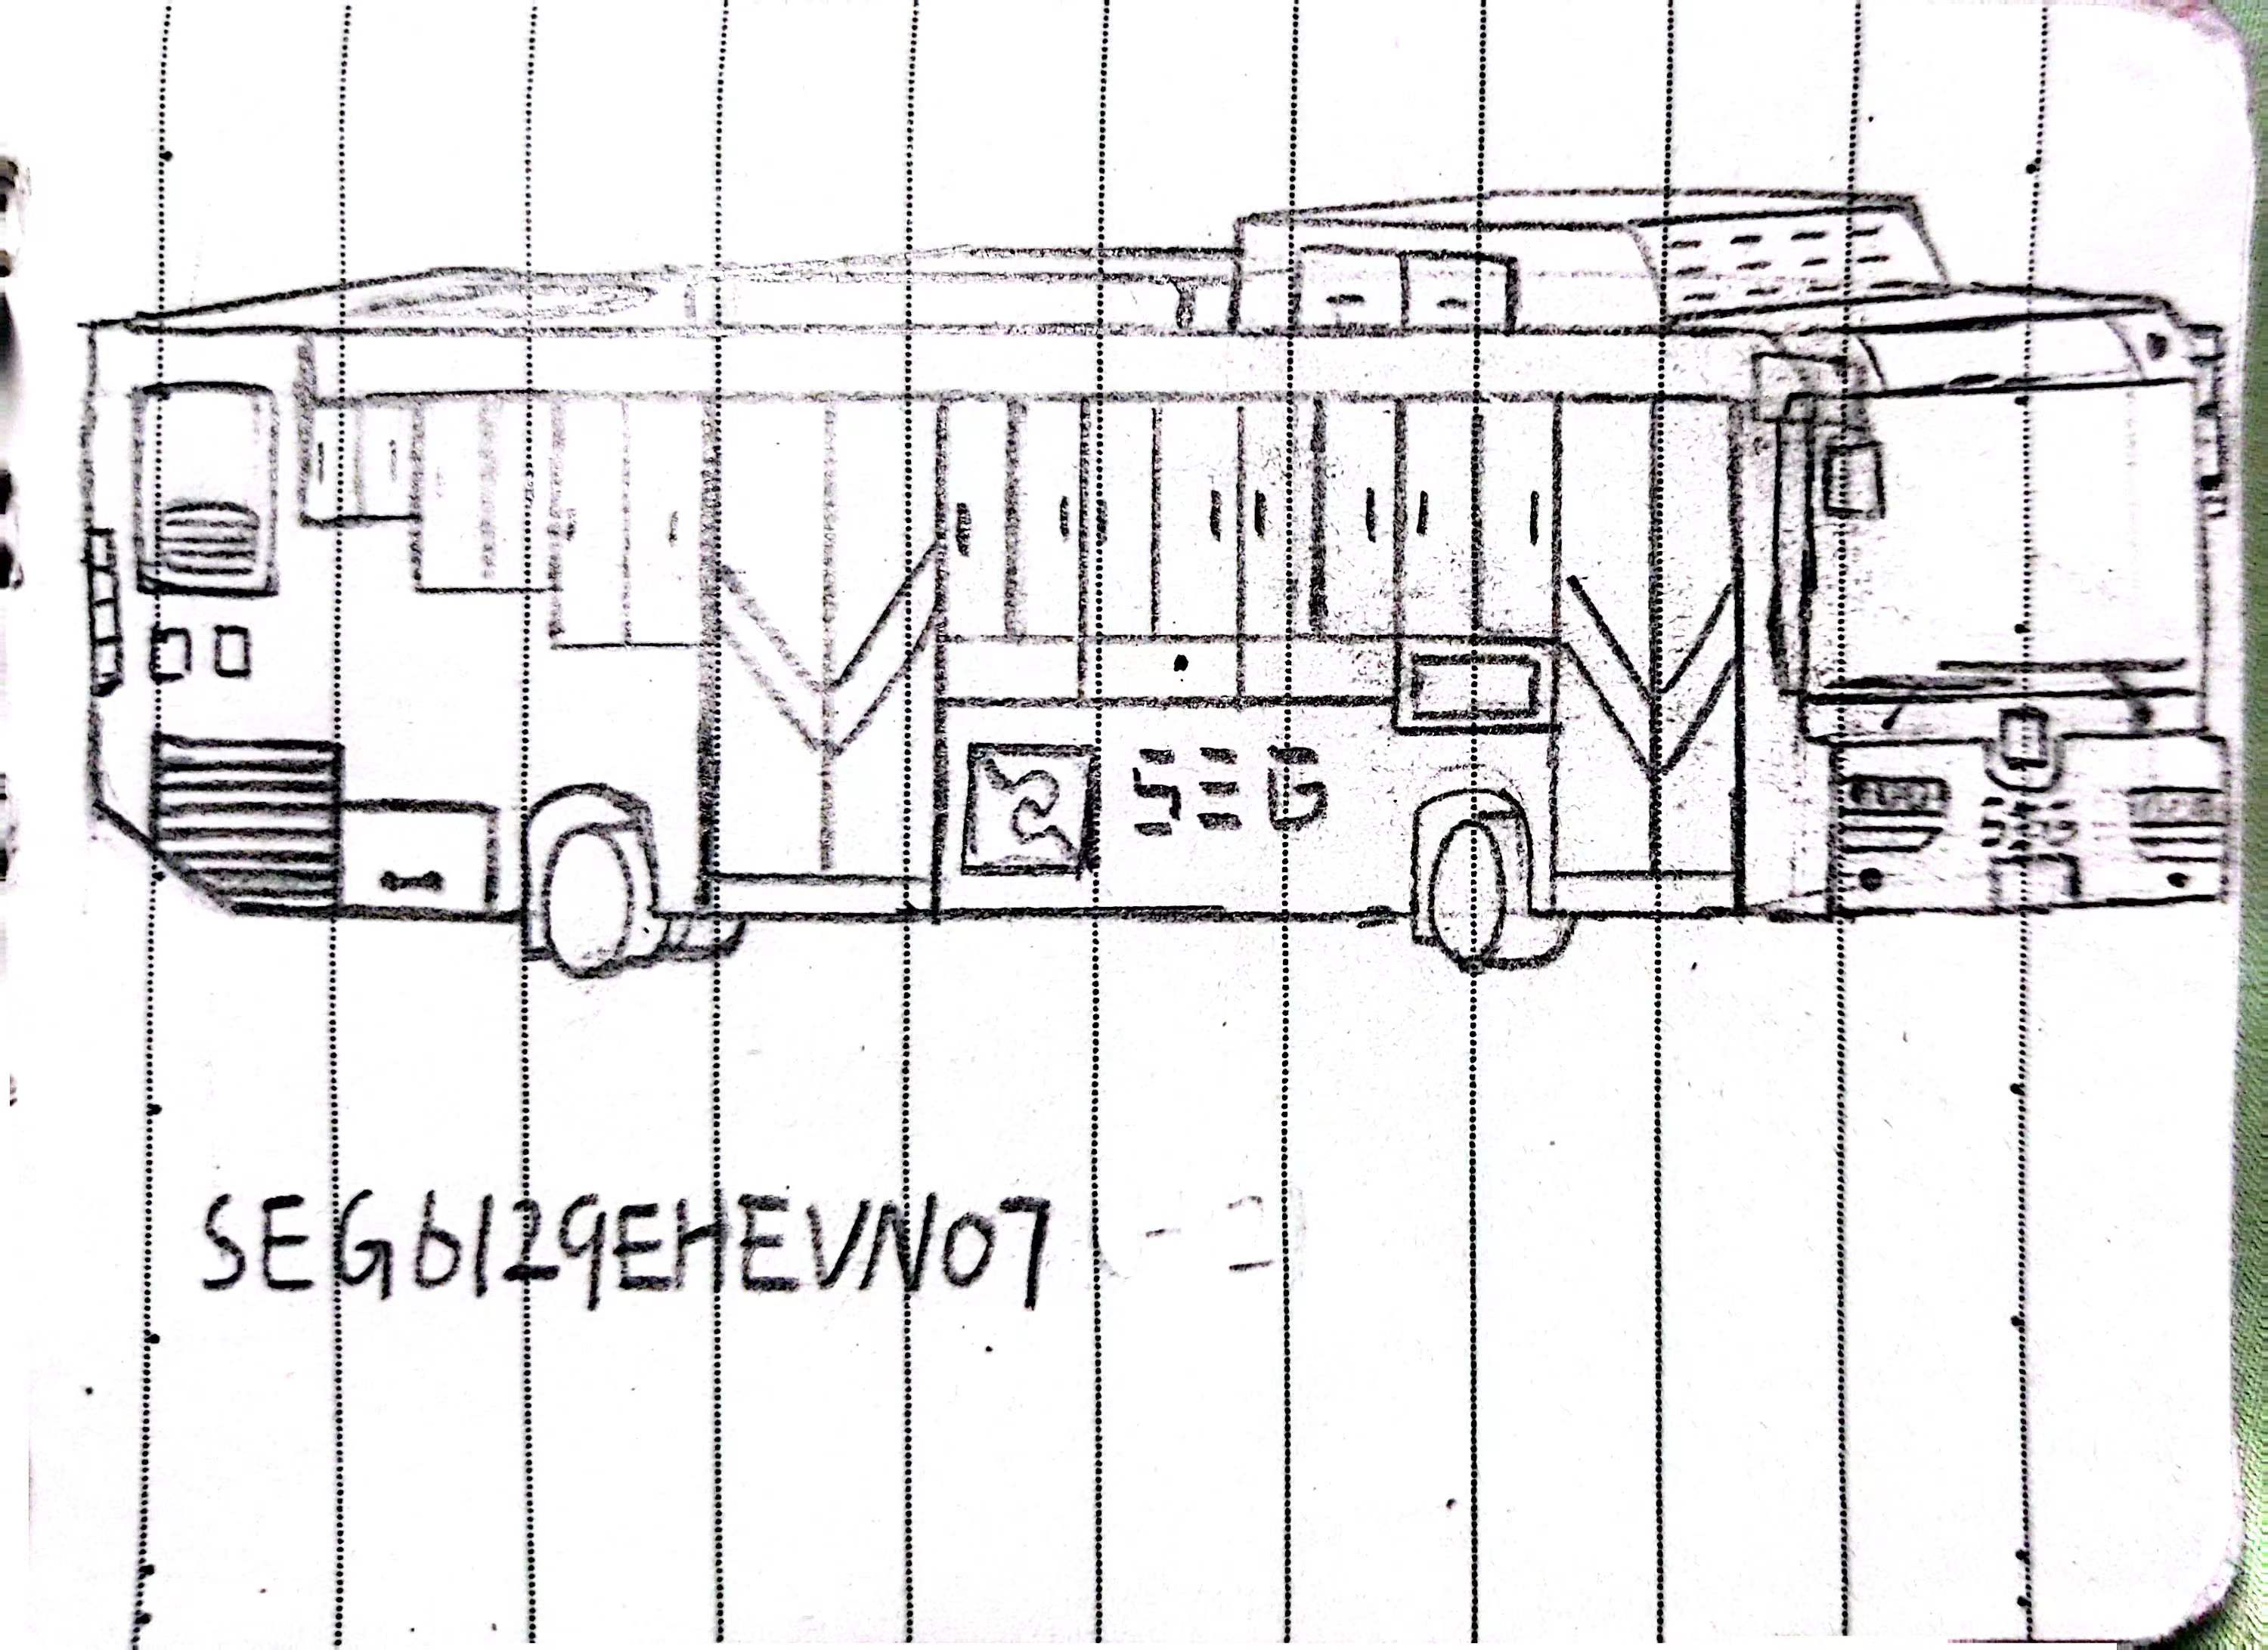 SEG
SEG
SEG6129EHEVN07